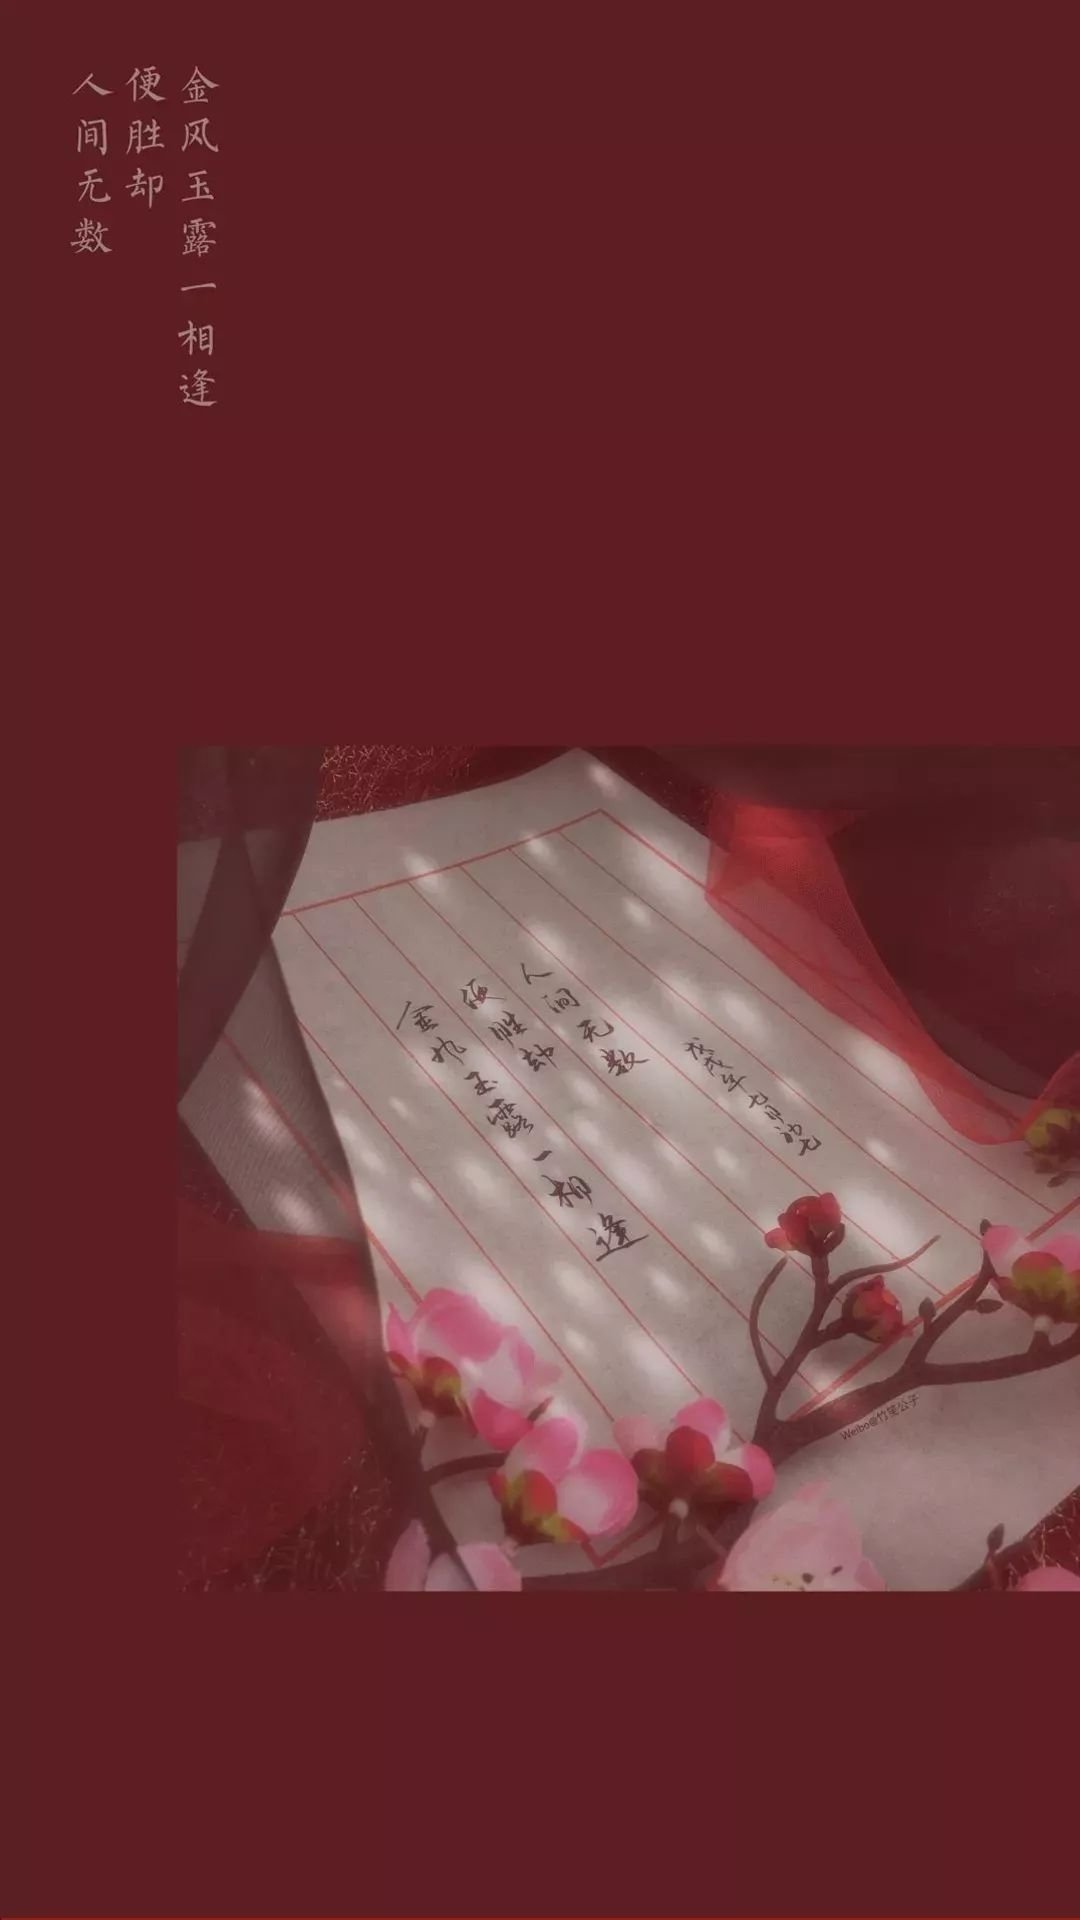 金风玉露一相逢
便胜却
人间无数
金风玉露一相逢
便胜却
人间无数
戊戌年七月初七
Weibo@竹笙公子